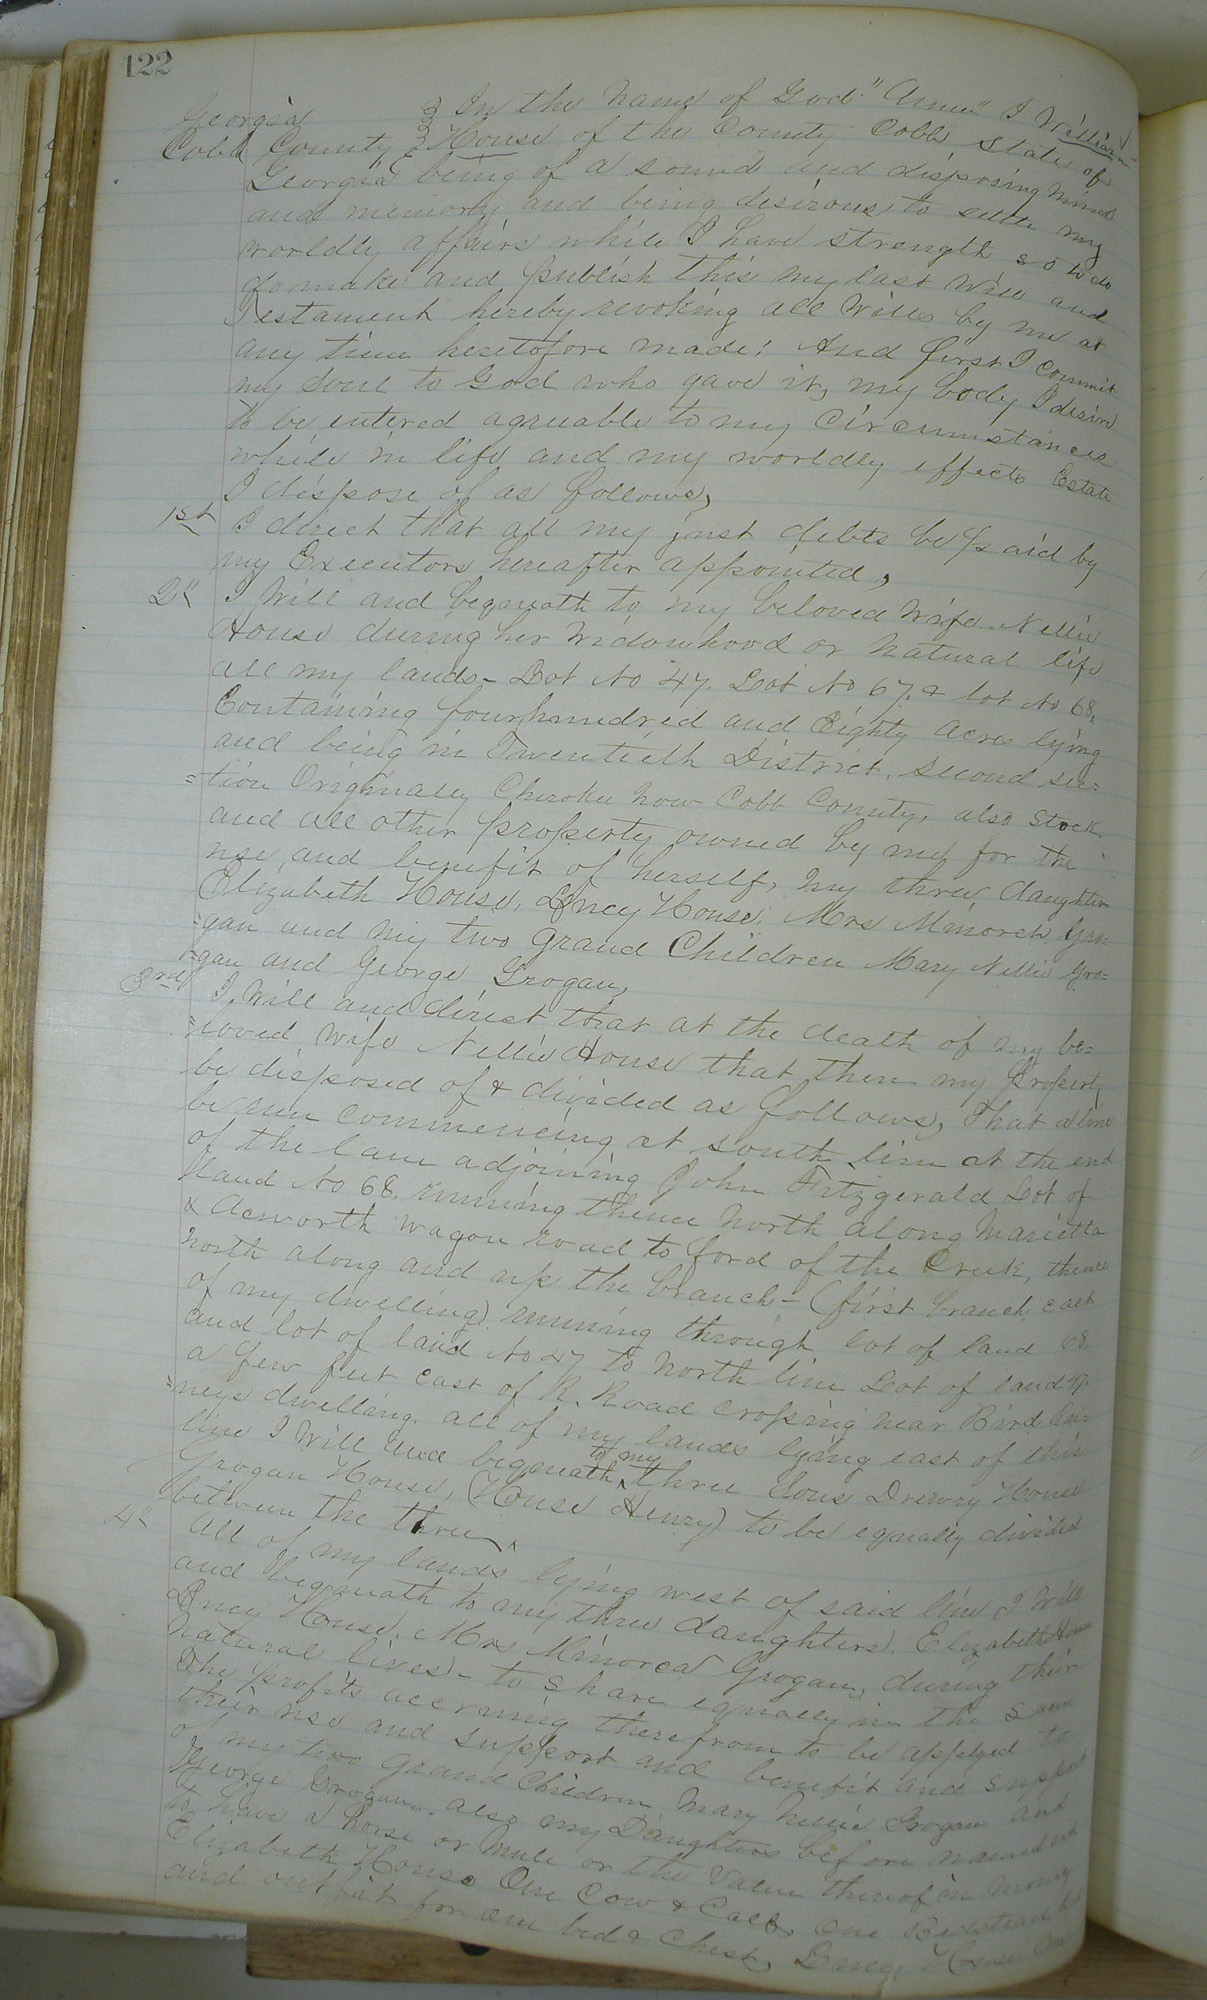 122
Georgia } In the Name of God "Amen" I William
Cobb County } House of the County Cobb State of
Georgia being of a sound and disposing mind
and memory and being desirous to settle my
worldly affairs while I have strength so to do
do make and publish this my last Will and
Testament hereby revoking all Wills by me at
any time heretofore made: And first I commit
my Soul to God who gave it, my body I desire
to be entered agreeable to my circumstances
while in life and my worldly effects Estate
I dispose of as follows,
1st I direct that all my just debts be paid by
my Executors hereafter appointed,
2" I Will and bequeath to my beloved Wife Nellie
House during her Widowhood or natural life
all my lands - Lot No 47. Lot No 67. & lot No 68,
Containing fourhundred and Eighty acres lying
and being in Twentieth District, Second sec=
=tion Originally Cherokee now Cobb County, also Stock
and all other property owned by me for the
use and benefit of herself, my three daughters
Elizabeth House, Lyncy House, Mrs Minorca Gro=
=gan and my two Grand Children Mary Nellie Gro=
=gan and George Grogan,
3rd I Will and direct that at the death of my be=
=loved Wife Nellie House that then my Property
be disposed of & divided as follows, That a line
be run commencing at south line at the end
of the lane adjoining John Fitzgerald Lot of
Land No 68. running thence North along Marietta
& Acworth wagon road to ford of the Creek, thence
North along and up the branch - (first branch east
of my dwelling) running through lot of land 68
and lot of land No 47 to North line Lot of land 47.
a few feet east of R. Road crossing near Bird
=neys dwelling. all of my lands lying east of this
line I Will and bequeath to my three Sons Drewry House
Grogan House, (House Henry) to be equally divided
between the three,
4" All of my lands lying west of said line I Will
and bequeath to my three daughters. Elizabeth House
Lyncy House. Mrs Minorca Grogan, during their
natural lives - to share equally in the same
The profits accruing therefrom to be applyed to
their use and support and benefit and support
of my two Grand Children Mary Nellie Grogan and
George Grogan. also my Daughters before named
to have a horse or mule or the Value thereof in money
Elizabeth House One Cow & Calf, One Bedstead
and outfit for one bed & Chest, Lyncy House